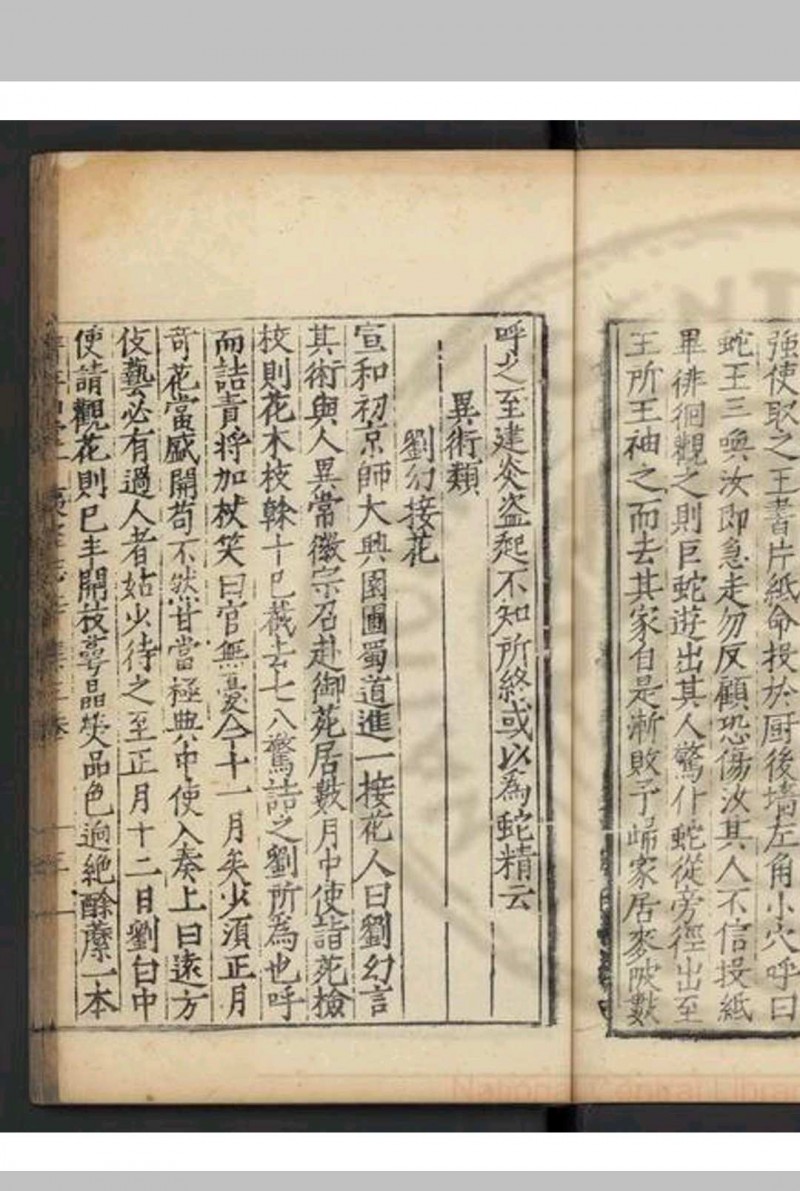 強使取之王書片紙命投於厨後墻左角小穴呼曰
蛇王三喚汝即急走勿反顧恐傷汝其人不信投紙
畢徘徊觀之則巨蛇遊出其人驚仆蛇從旁徑出至
王所王袖之而去其家自是漸敗予歸家居麥陂數
呼之至建炎盗起不知所終或以為蛇精云
異術類
劉幻接花
宣和初京師大興園圃蜀道進一接花人曰劉幻言
其術與人異常徽宗召赴御苑居數月中使詣苑檢
校則花木枝榦十已截去七八驚詰之劉所為也呼
而詰責将加杖笑曰官無憂今十一月矣少須正月
竒花當盛開苟不然甘當極典中使入奏上曰遠方
伎藝必有過人者姑少待之至正月十二日劉白中
使請觀花則已半開枝萼晶熒品色逈絶酴醿一本
National Central Librar